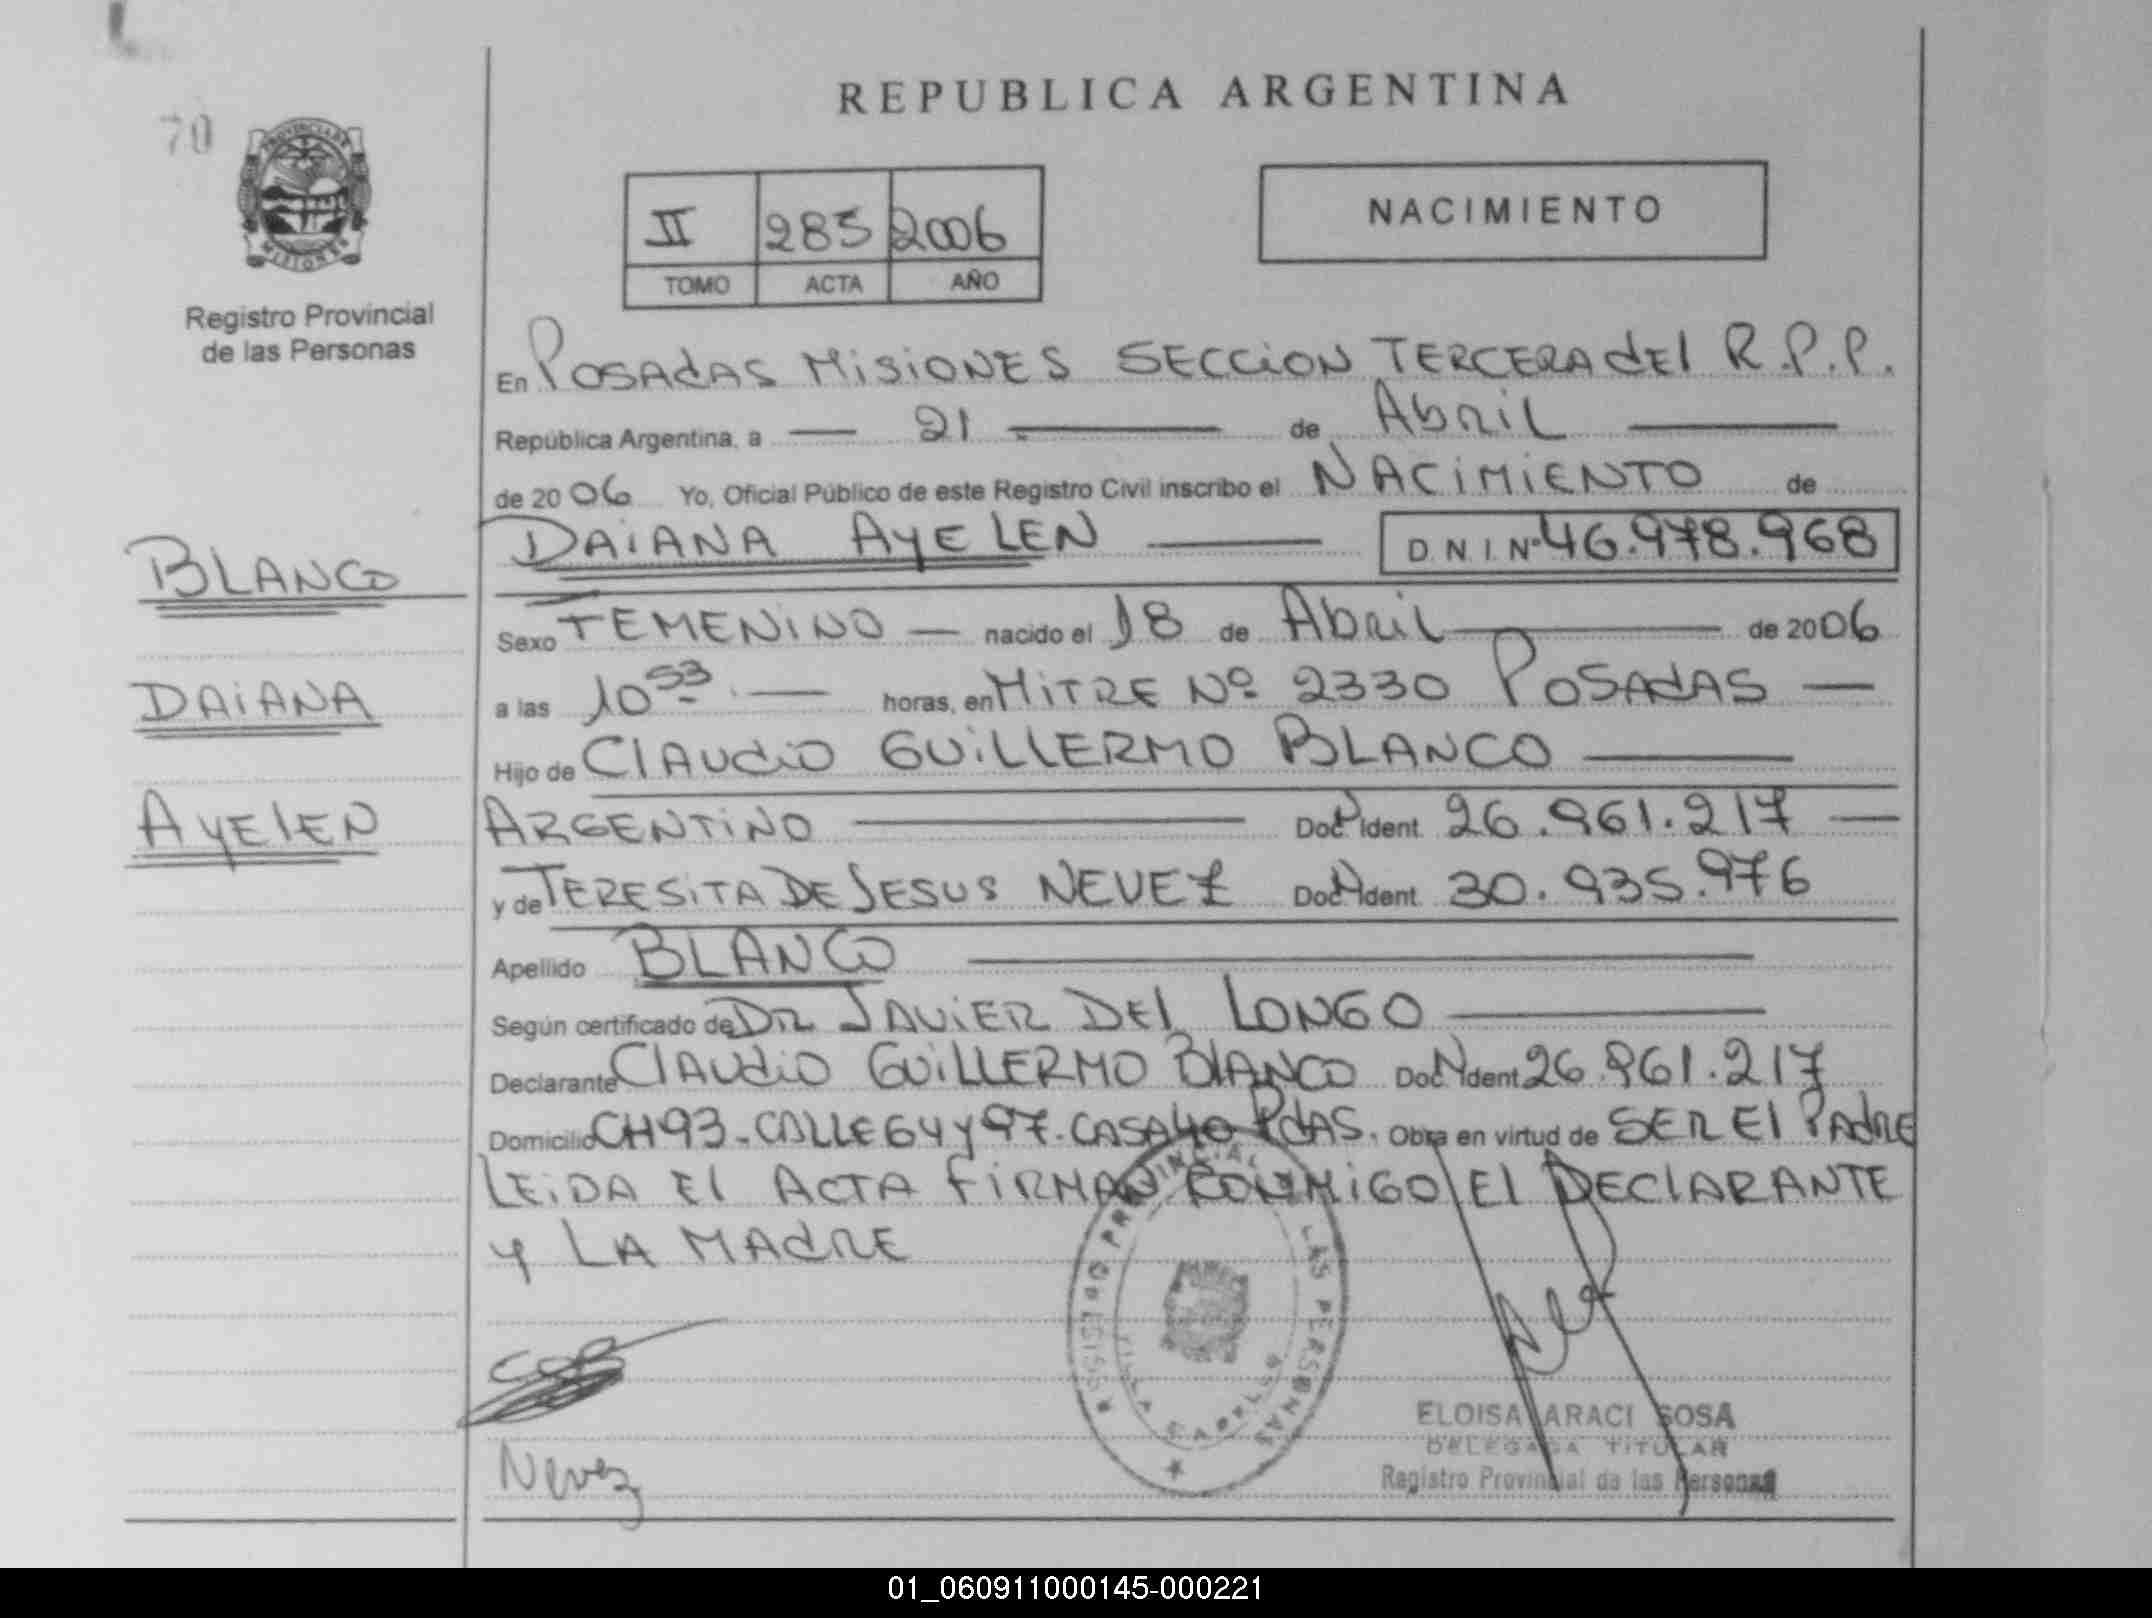 REPUBLICA ARGENTINA
70
PROVINCIA DE
MISIONES
Registro Provincial
de las Personas
II 285 2006
TOMO ACTA AÑO
NACIMIENTO
En POSAdAS MISIONES SECCION TERCERA dEl R.P.P.
República Argentina, a — 21 — de AbRIL —
de 20 06 Yo, Oficial Público de este Registro Civil inscribo el NACIMIENTO de
DAIANA AYELEN — D.N.I. Nº 46.978.968
BLANCO
DAIANA
AYElEN
Sexo FEMENINO — nacido el 18 de AbRIL — de 2006
a las 10 53 — horas, en MITRE Nº 2330 POSAdAS —
Hijo de ClAUdIO GUILLERMO BLANCO —
ARGENTINO — Doc. Nº Ident. 26.961.217 —
y de TERESITA DE JESUS NEVEZ Doc. Nº Ident. 30.935.976
Apellido BLANCO —
Según certificado de DR JAVIER DEl LONGO —
Declarante ClAUdIO GUILLERMO BlANCO Doc. Nº Ident 26.961.217
Domicilio CH 93 - CALLE 64 y 97. CASA 40 PdAS. Obra en virtud de SER El PAdRE
LEIDA El ACTA FIRMAN CONMIGO El DEClARANTE
y LA MAdRE
REGISTRO PROVINCIAL DE LAS PERSONAS
Nevez
ELOISA ARACI SOSA
DELEGADA TITULAR
Registro Provincial de las Personas
01_060911000145-000221